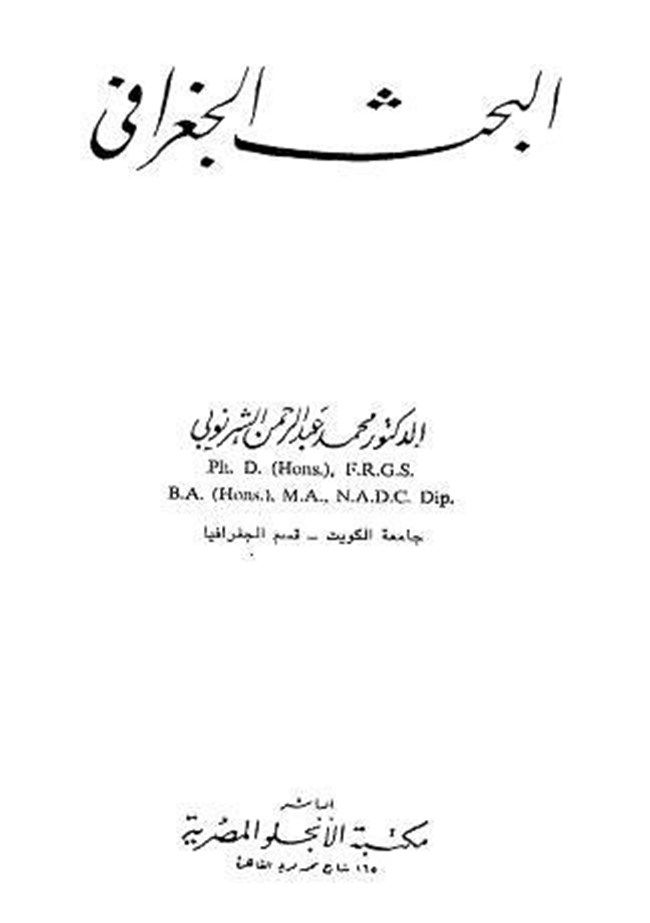 البحث الجغرافى
الدكتور محمد عبد الرحمن الشرنوبي
Ph. D. (Hons.), F.R.G.S.
B.A. (Hons.), M.A., N.A.D.C. Dip.
جامعة الكويت – قسم الجغرافيا
الناشر
مكتبة الأنجلو المصرية
١٦٥ شارع محمد فريد القاهرة